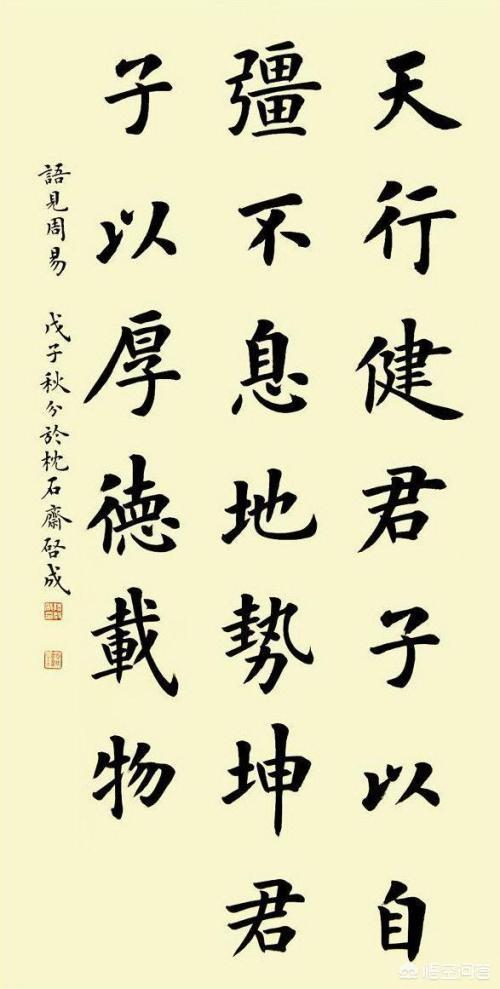 天行健君子以自
彊不息地勢坤君
子以厚德載物
語見周易 戊子秋分於枕石齋啓成
悟空问答